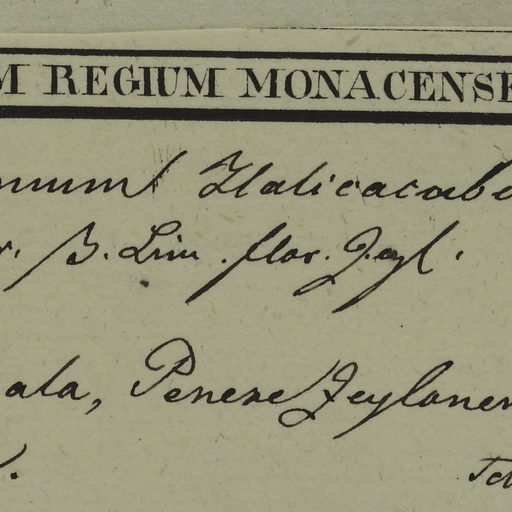 M REGIUM MONACENSE
num Halicacabu
r. β. Linn. flor. Zeyl.
ala, Penere Zeylanen